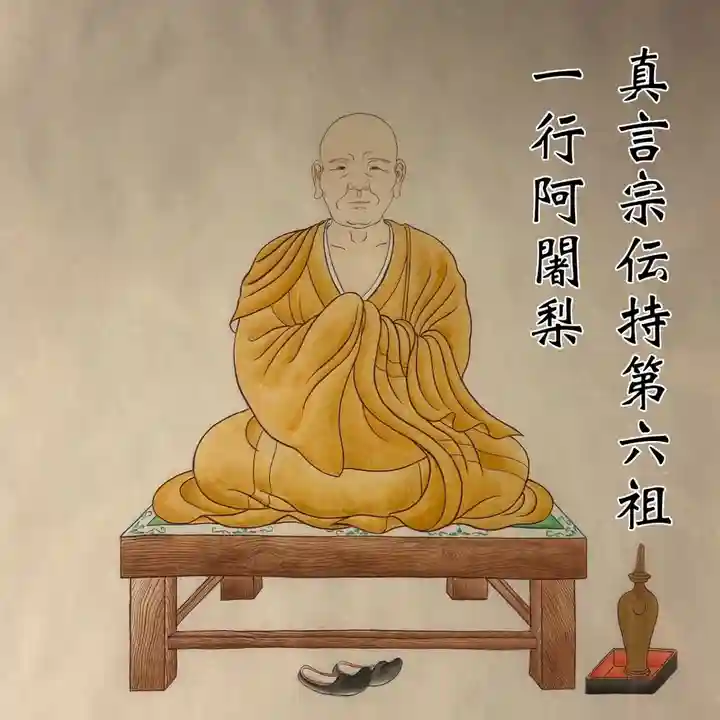 真言宗伝持第六祖
一行阿闍梨